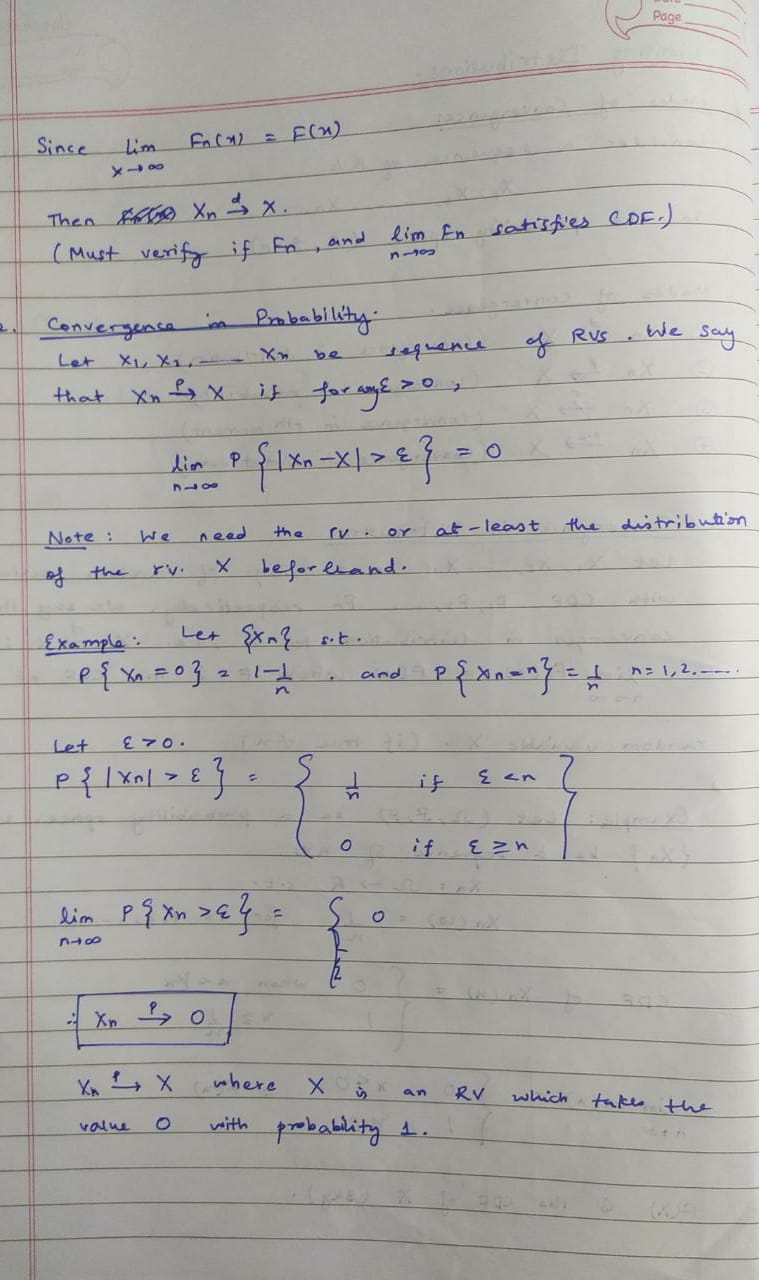 Page
Since lim Fn(x) = F(x)
x→∞
Then Xn d→ X.
(Must verify if Fn, and lim Fn satisfies CDF.)
n→∞
2. Convergence in Probability.
Let X1, X2, ---- Xn be sequence of RVs. We say
that Xn P→ X if for any ε > 0,
lim P { |Xn-X| > ε } = 0
n→∞
Note: We need the rv. or at-least the distribution
of the rv. X beforehand.
Example: Let {Xn} s.t.
P{ Xn = 0} = 1-1/n . and P{ Xn=n} = 1/n n=1,2,----
Let ε>0.
P{ |Xn| > ε } = { 1/n if ε < n }
0 if ε ≥ n
lim P{ Xn > ε } = { 0
n→∞
∴ Xn P→ 0
Xn P→ X where X is an RV which takes the
value 0 with probability 1.